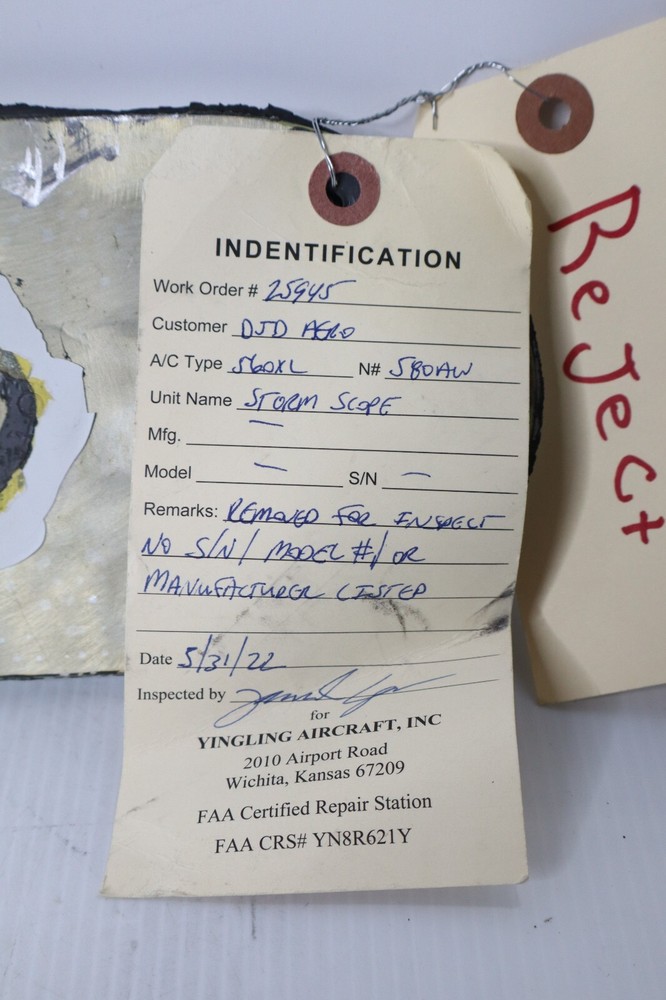 INDENTIFICATION
Work Order # 25945
Customer DJD AERO
A/C Type 560XL N# 580AW
Unit Name STORM SCOPE
Mfg. —
Model — S/N —
Remarks: REMOVED FOR INSPECT
NO S/N/ MODEL #/ OR
MANUFACTURER LISTED
Date 5/31/22
Inspected by
for
YINGLING AIRCRAFT, INC
2010 Airport Road
Wichita, Kansas 67209
FAA Certified Repair Station
FAA CRS# YN8R621Y
ReJect